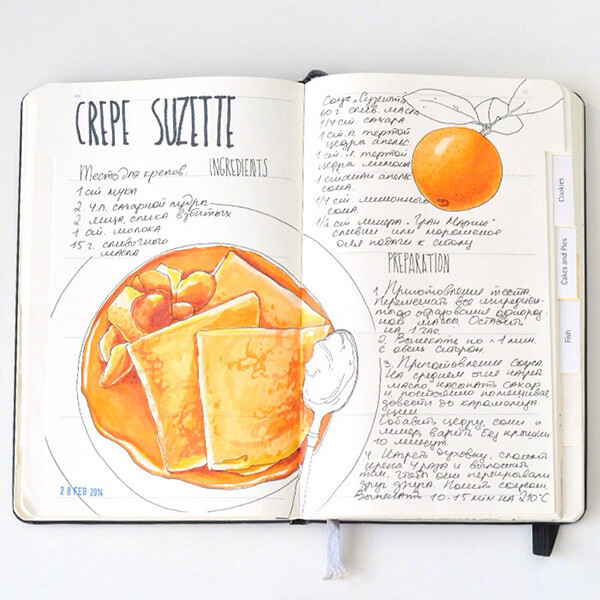 CREPE SUZETTE
INGREDIENTS
Тесто для крепов:
1 ст мука
2 ч.л. сахарной пудры
2 яйца, слегка взбитых
1 ст. молока
15 г. сливочного
масла
28 FEB 2014
Соус "Сюзетт"
60 г слив. масла
1/4 ст. сахара
1 ст. л. тертой
цедры апельс.
1 ст. л. тертой
цедры лимона
апельсин
сока
1/4 ст. лимонного
сока
1/4 ст. ликера "Гран Марнье"
сливки или мороженое
для подачи к столу
PREPARATION
1. Приготовление теста.
Перемешать все ингредиен-
ты до образования однород-
ной массы. Оставить
на 1 час.
2. Выпекать по ~1 мин.
с обеих сторон.
3. Приготовление соуса
На среднем огне нагреть
масло, насыпать сахар
и, постоянно помешивая,
довести до карамелиза-
ции.
Добавить цедру, соки и
ликер, варить без крышки
10 минут.
4. Нагреть духовку, сложить
крепы 4 раза и выложить
так, чтобы они перекрывали
друг друга. Полить соусом.
Выпекать 10-15 мин на 210°C
Cookies
Cakes and Pies
Fish